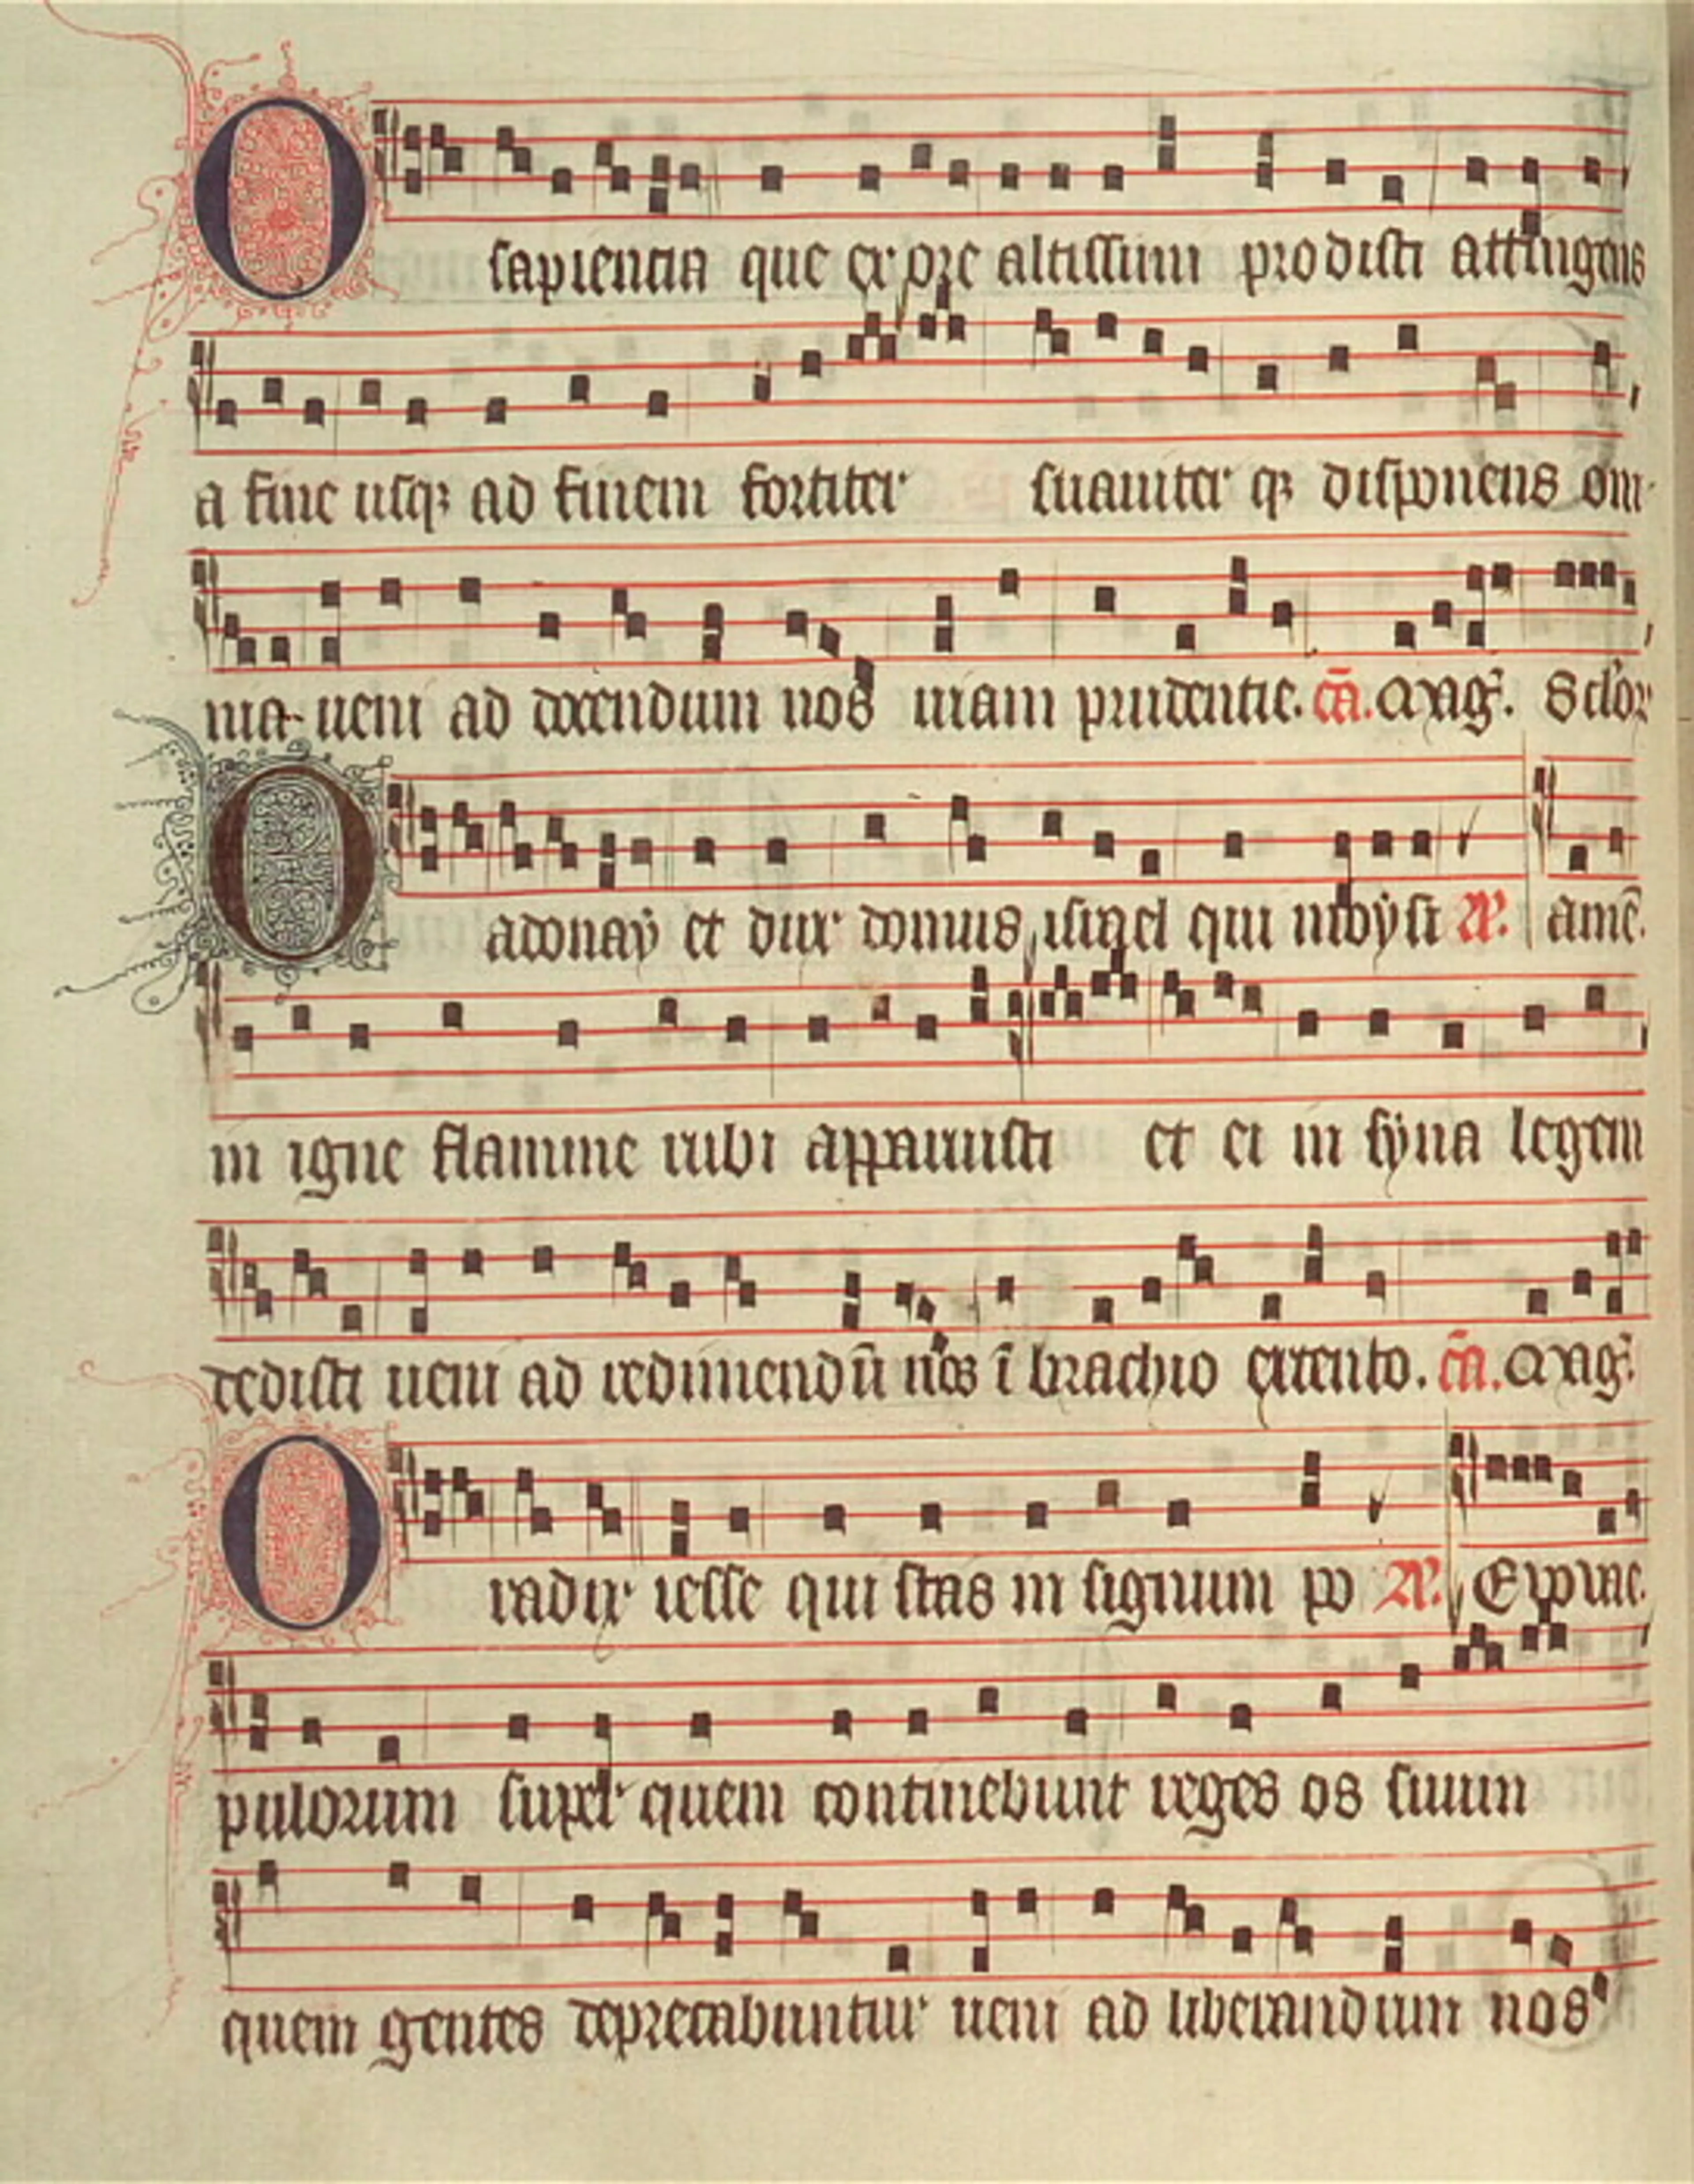 O sapientia que ex ore altissimi prodisti attingens
a fine usqꝫ ad finem fortiter suauiter qꝫ disponens om
nia ueni ad docendum nos uiam prudentie. c̄a. Mag̃.
O adonaÿ et dux domus israel qui moÿsi amē.
in igne flamme rubi apparuisti et ei in sÿna legem
dedisti ueni ad redimendū nos ī brachio extento. c̄a. Mag̃.
O radix iesse qui stas in signum po
pulorum super quem continebunt reges os suum
quem gentes deprecabuntur ueni ad liberandum nos